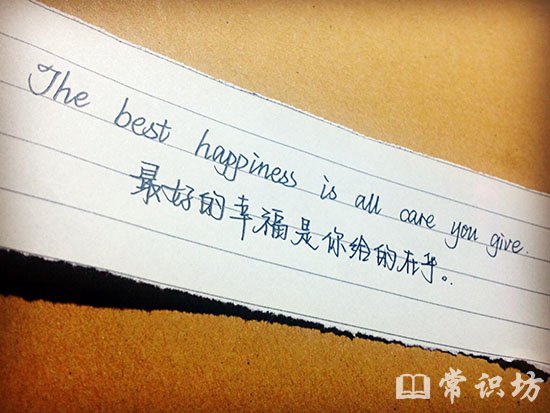 The best happiness is all care you give.
最好的幸福是你给的在乎。
常识坊